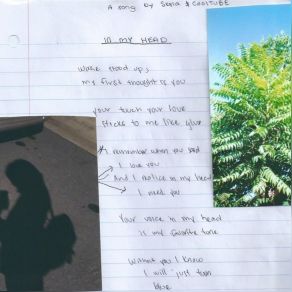 A song by Skaia & COOLTUBE
IN MY HEAD
Wake stood up,
my first thought is you
your touch your love
sticks to me like glue
I remember when you said
I love you
And I notice in my head
I need you
Your voice in my head
is my favorite tone
Without you I know
I will just turn
blue